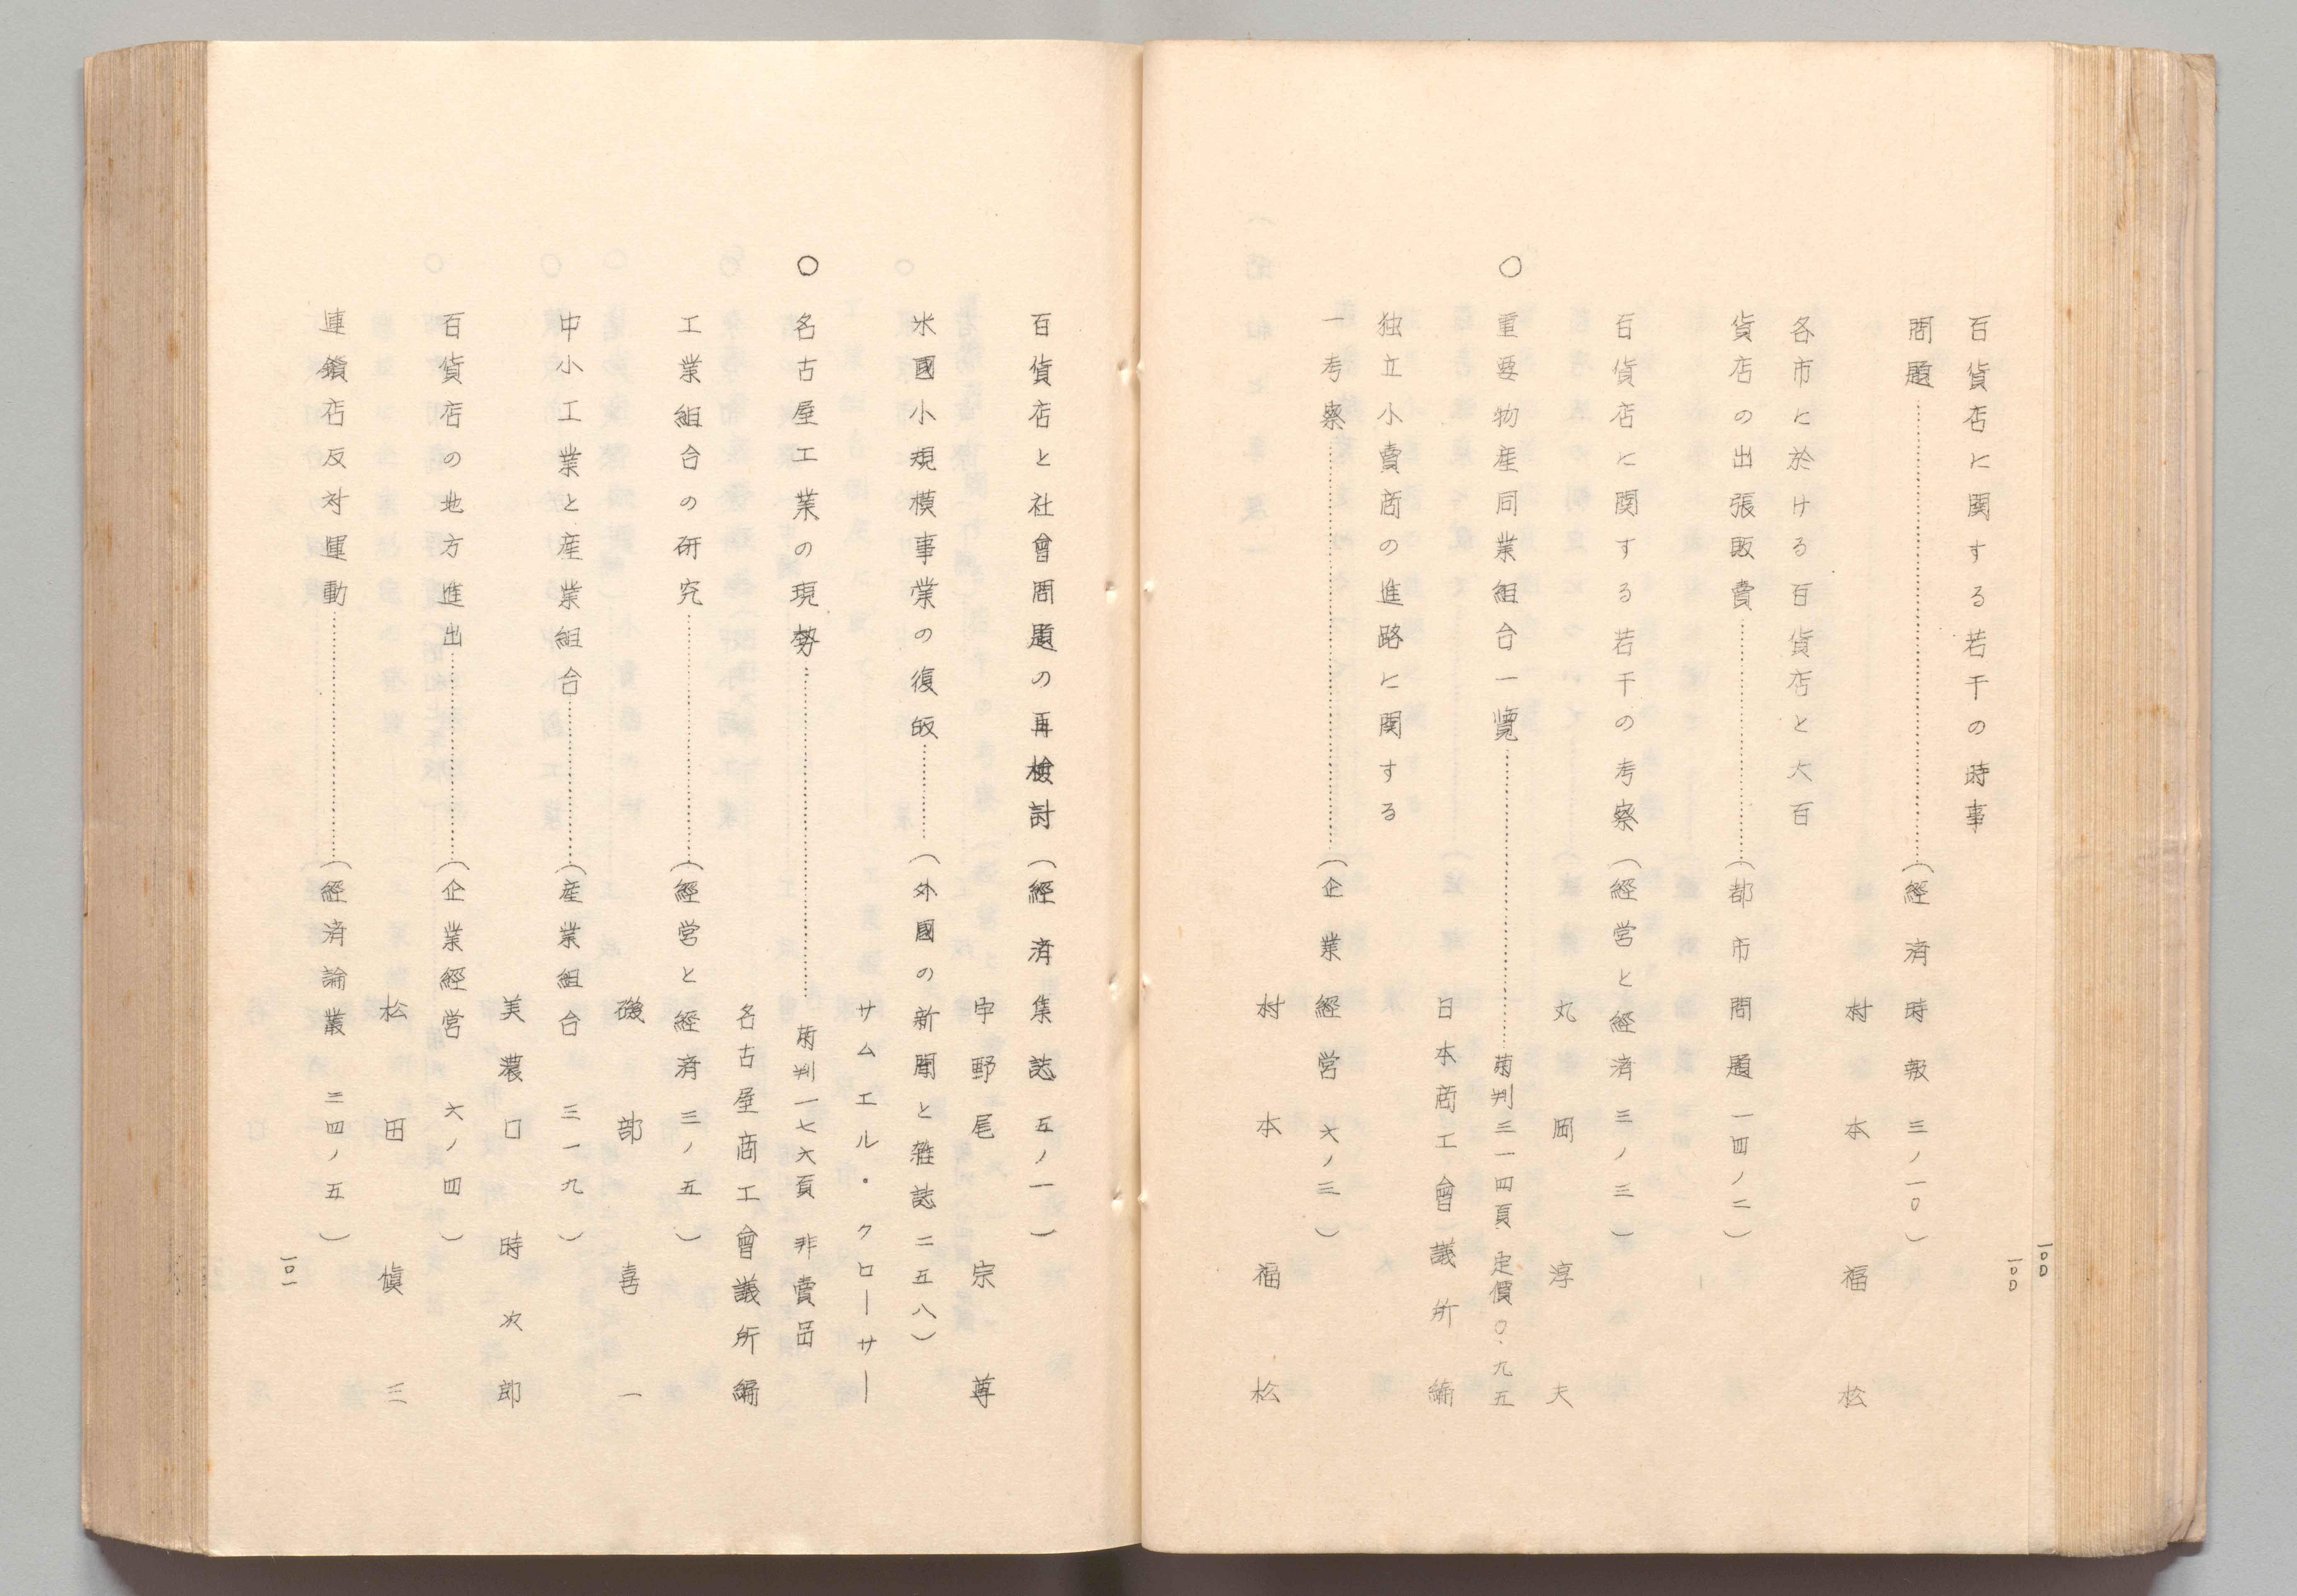 百貨店に関する若干の時事
問題……………………(経済時報 三ノ一〇)
村本福松
各市に於ける百貨店と大百
貨店の出張販賣……………(都市問題 一四ノ二)
百貨店に関する若干の考察(経営と経済 三ノ三)
丸岡淳夫
○ 重要物産同業組合一覽……………菊判三一四頁 定價〇・九五
日本商工會議所編
独立小賣商の進路に関する
一考察……………………(企業経営 六ノ三)
村本福松
一〇〇
一〇〇
百貨店と社會問題の再檢討(経済集誌 五ノ一)
宇野尾宗尊
米國小規模事業の復皈………(外國の新聞と雜誌 二五八)
サムエル・クローサー
○ 名古屋工業の現勢……………菊判一七六頁 非賣品
名古屋商工會議所編
工業組合の研究……………(経営と経済 三ノ五)
磯部喜一
中小工業と産業組合…………(産業組合 三一九)
美濃口時次郎
百貨店の地方進出……………(企業経営 六ノ四)
松田愼三
連鎖店反対運動……………(経済論叢 三四ノ五)
一〇一